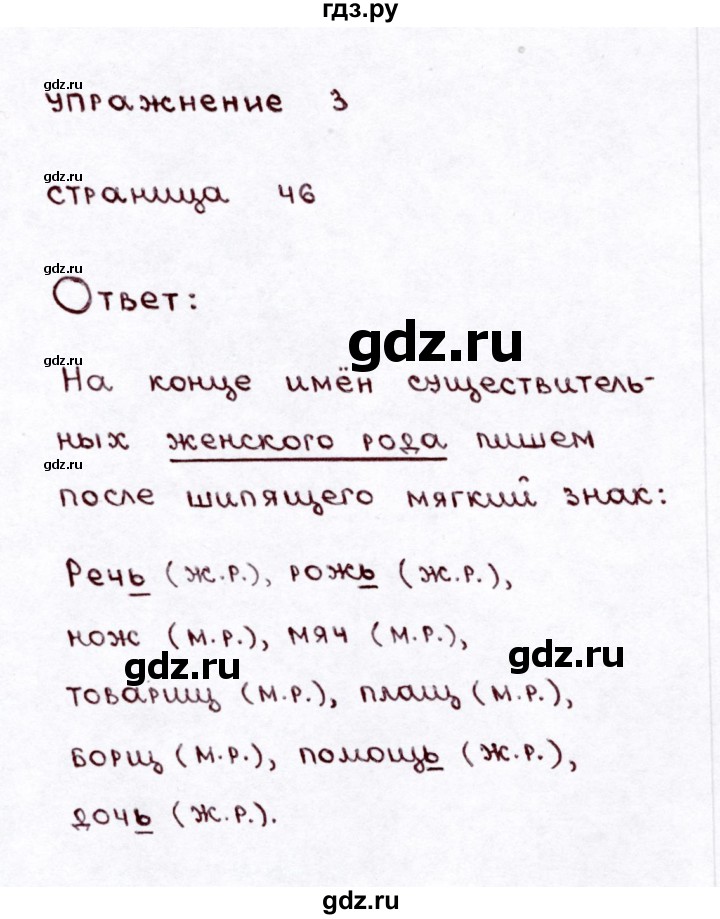 гдз.ру
gdz.ru
упражнение 3
gdz.ru
страница 46
gdz.ru
Ответ:
gdz.ru
gdz.ru
На конце имён существитель-
ных женского рода пишем
gdz.ru
после шипящего мягкий знак:
Речь (ж.р.), рожь (ж.р.),
нож (м.р.), мяч (м.р.),
gdz.ru
gdz.ru
товарищ (м.р.), плащ (м.р.),
борщ (м.р.), помощь (ж.р.),
дочь (ж.р.).
gdz.ru